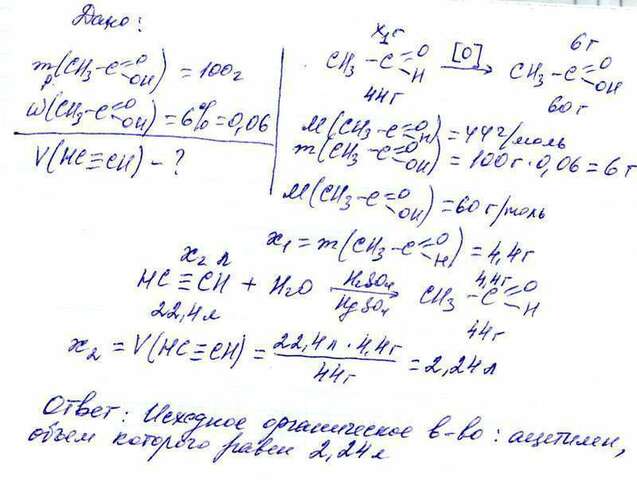 Дано:
m р (CH₃-C=O-OH) = 100г
ω(CH₃-C=O-OH) = 6% = 0,06
V(HC≡CH) - ?
x₁г 6г
CH₃-C=O-H [O]→ CH₃-C=O-OH
44г 60г
M(CH₃-C=O-H) = 44г/моль
m(CH₃-C=O-OH) = 100г·0,06 = 6г
M(CH₃-C=O-OH) = 60г/моль
x₁ = m(CH₃-C=O-H) = 4,4г
x₂ л 4,4г
HC≡CH + H₂O H₂SO₄ HgSO₄→ CH₃-C=O-H
22,4л 44г
x₂ = V(HC≡CH) = 22,4л·4,4г / 44г = 2,24л
Ответ: Исходное органическое в-во: ацетилен,
объем которого равен 2,24л